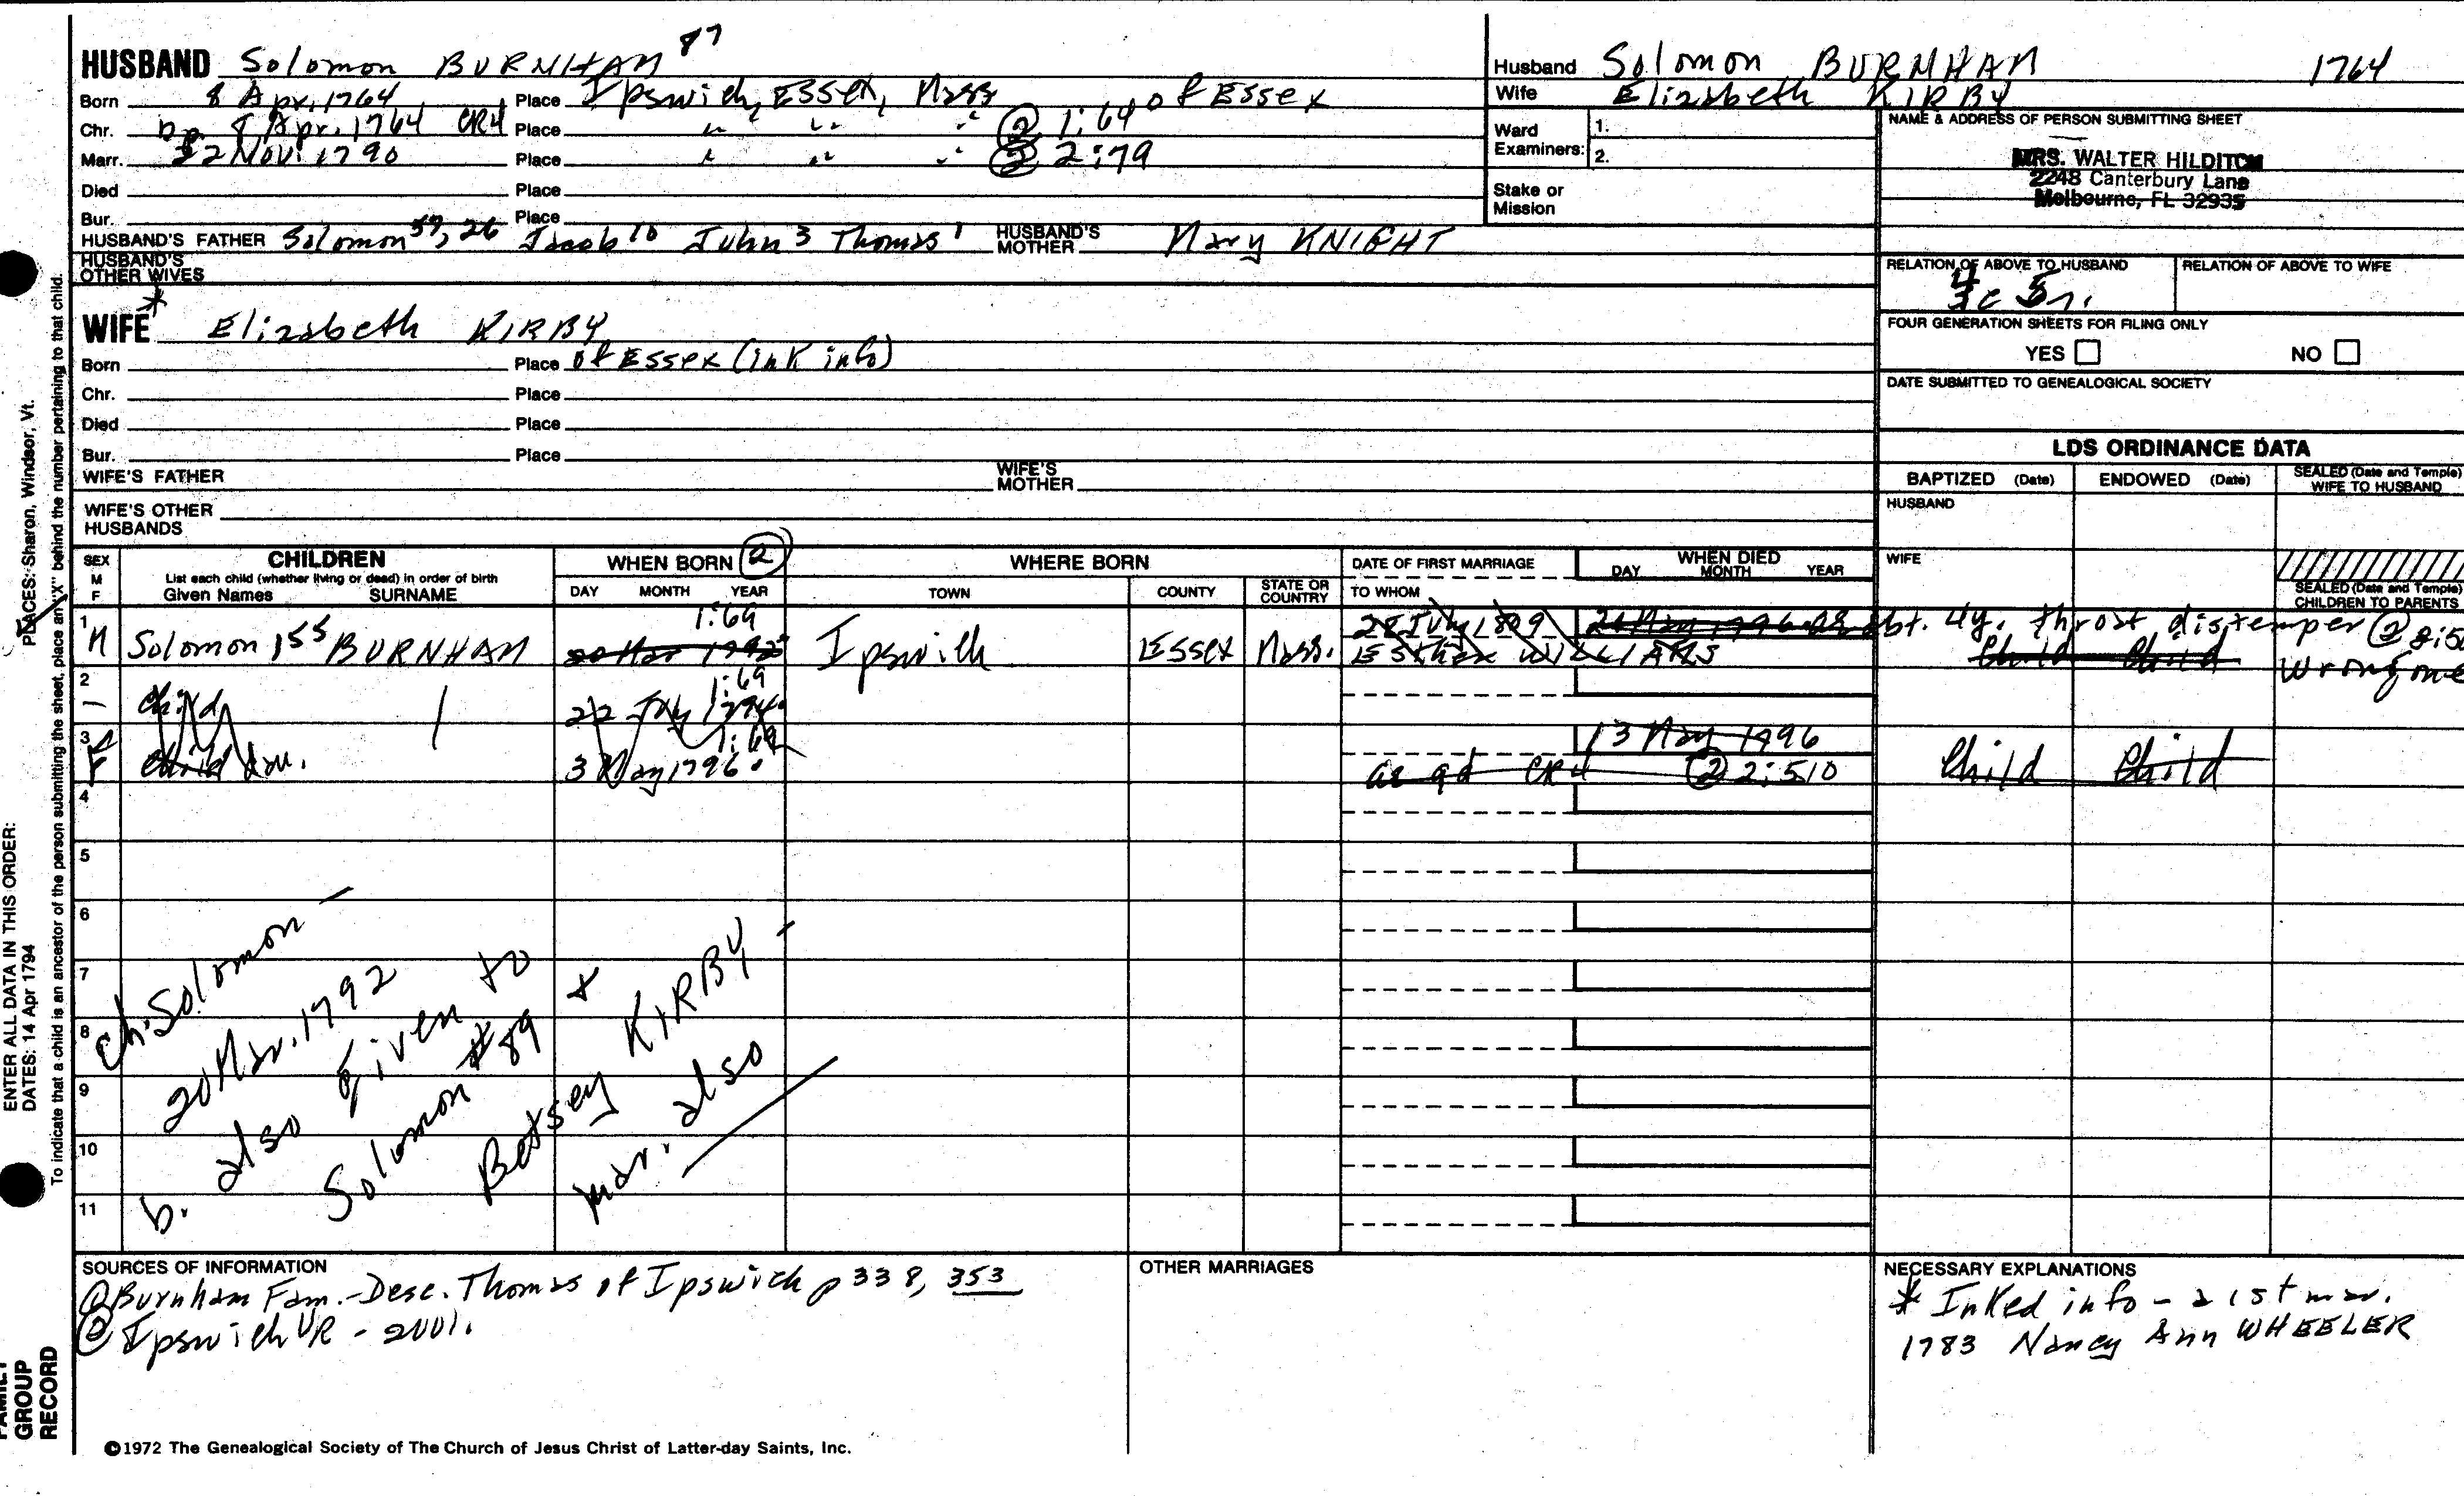 HUSBAND Solomon BURNHAM 87
Born 8 Apr. 1764 Place Ipswich, Essex, Mass of Essex
Chr. bp. 8 Apr. 1764 CR4 Place " " " ② 1:64
Marr. 22 Nov. 1790 Place " " " ② 2:79
Died Place
Bur. Place
HUSBAND'S FATHER Solomon 37, 26 Jacob 10 John 3 Thomas 1 HUSBAND'S MOTHER Mary KNIGHT
HUSBAND'S OTHER WIVES
*
WIFE Elizabeth KIRBY
Born Place of Essex (ink info)
Chr. Place
Died Place
Bur. Place
WIFE'S FATHER WIFE'S MOTHER
WIFE'S OTHER HUSBANDS
Husband Solomon BURNHAM 1764
Wife Elizabeth KIRBY
Ward Examiners: 1.
2.
Stake or Mission
NAME & ADDRESS OF PERSON SUBMITTING SHEET
MRS. WALTER HILDITCH
2248 Canterbury Lane
Melbourne, FL 32935
RELATION OF ABOVE TO HUSBAND RELATION OF ABOVE TO WIFE
FOUR GENERATION SHEETS FOR FILING ONLY
YES NO
DATE SUBMITTED TO GENEALOGICAL SOCIETY
LDS ORDINANCE DATA
BAPTIZED (Date) ENDOWED (Date) SEALED (Date and Temple) WIFE TO HUSBAND
HUSBAND
WIFE
SEALED (Date and Temple) CHILDREN TO PARENTS
SEX M F
CHILDREN
List each child (whether living or dead) in order of birth
Given Names SURNAME
WHEN BORN ②
DAY MONTH YEAR
WHERE BORN
TOWN COUNTY STATE OR COUNTRY
DATE OF FIRST MARRIAGE
TO WHOM
WHEN DIED
DAY MONTH YEAR
1 1:69 28 July 1809 abt. 4y. throat distemper ②
M Solomon 155 BURNHAM 20 Mar 1792 Ipswich Essex Mass. Esther WILLIAMS Child Child wrong one
2 1:69
Child 22 July 1794
3 1:69 13 May 1796
F Child dau. 3 May 1796 ae 9d CR4 ② 2:510 Child Child
4
5
6
7
8
9
10
11
Ch. Solomon -
20 Mar. 1792
b. also given to
Solomon #89 +
Betsey KIRBY -
mar. also
SOURCES OF INFORMATION
① Burnham Fam. - Desc. Thomas of Ipswich p 338, 353
② Ipswich VR - 2001.
OTHER MARRIAGES
NECESSARY EXPLANATIONS
* Inked info - a 1st mar.
1783 Nancy Ann WHEELER
©1972 The Genealogical Society of The Church of Jesus Christ of Latter-day Saints, Inc.
FAMILY GROUP RECORD
ENTER ALL DATA IN THIS ORDER:
DATES: 14 Apr 1794
PLACES: Sharon, Windsor, Vt.
To indicate that a child is an ancestor of the person submitting the sheet, place an "X" behind the number pertaining to that child.